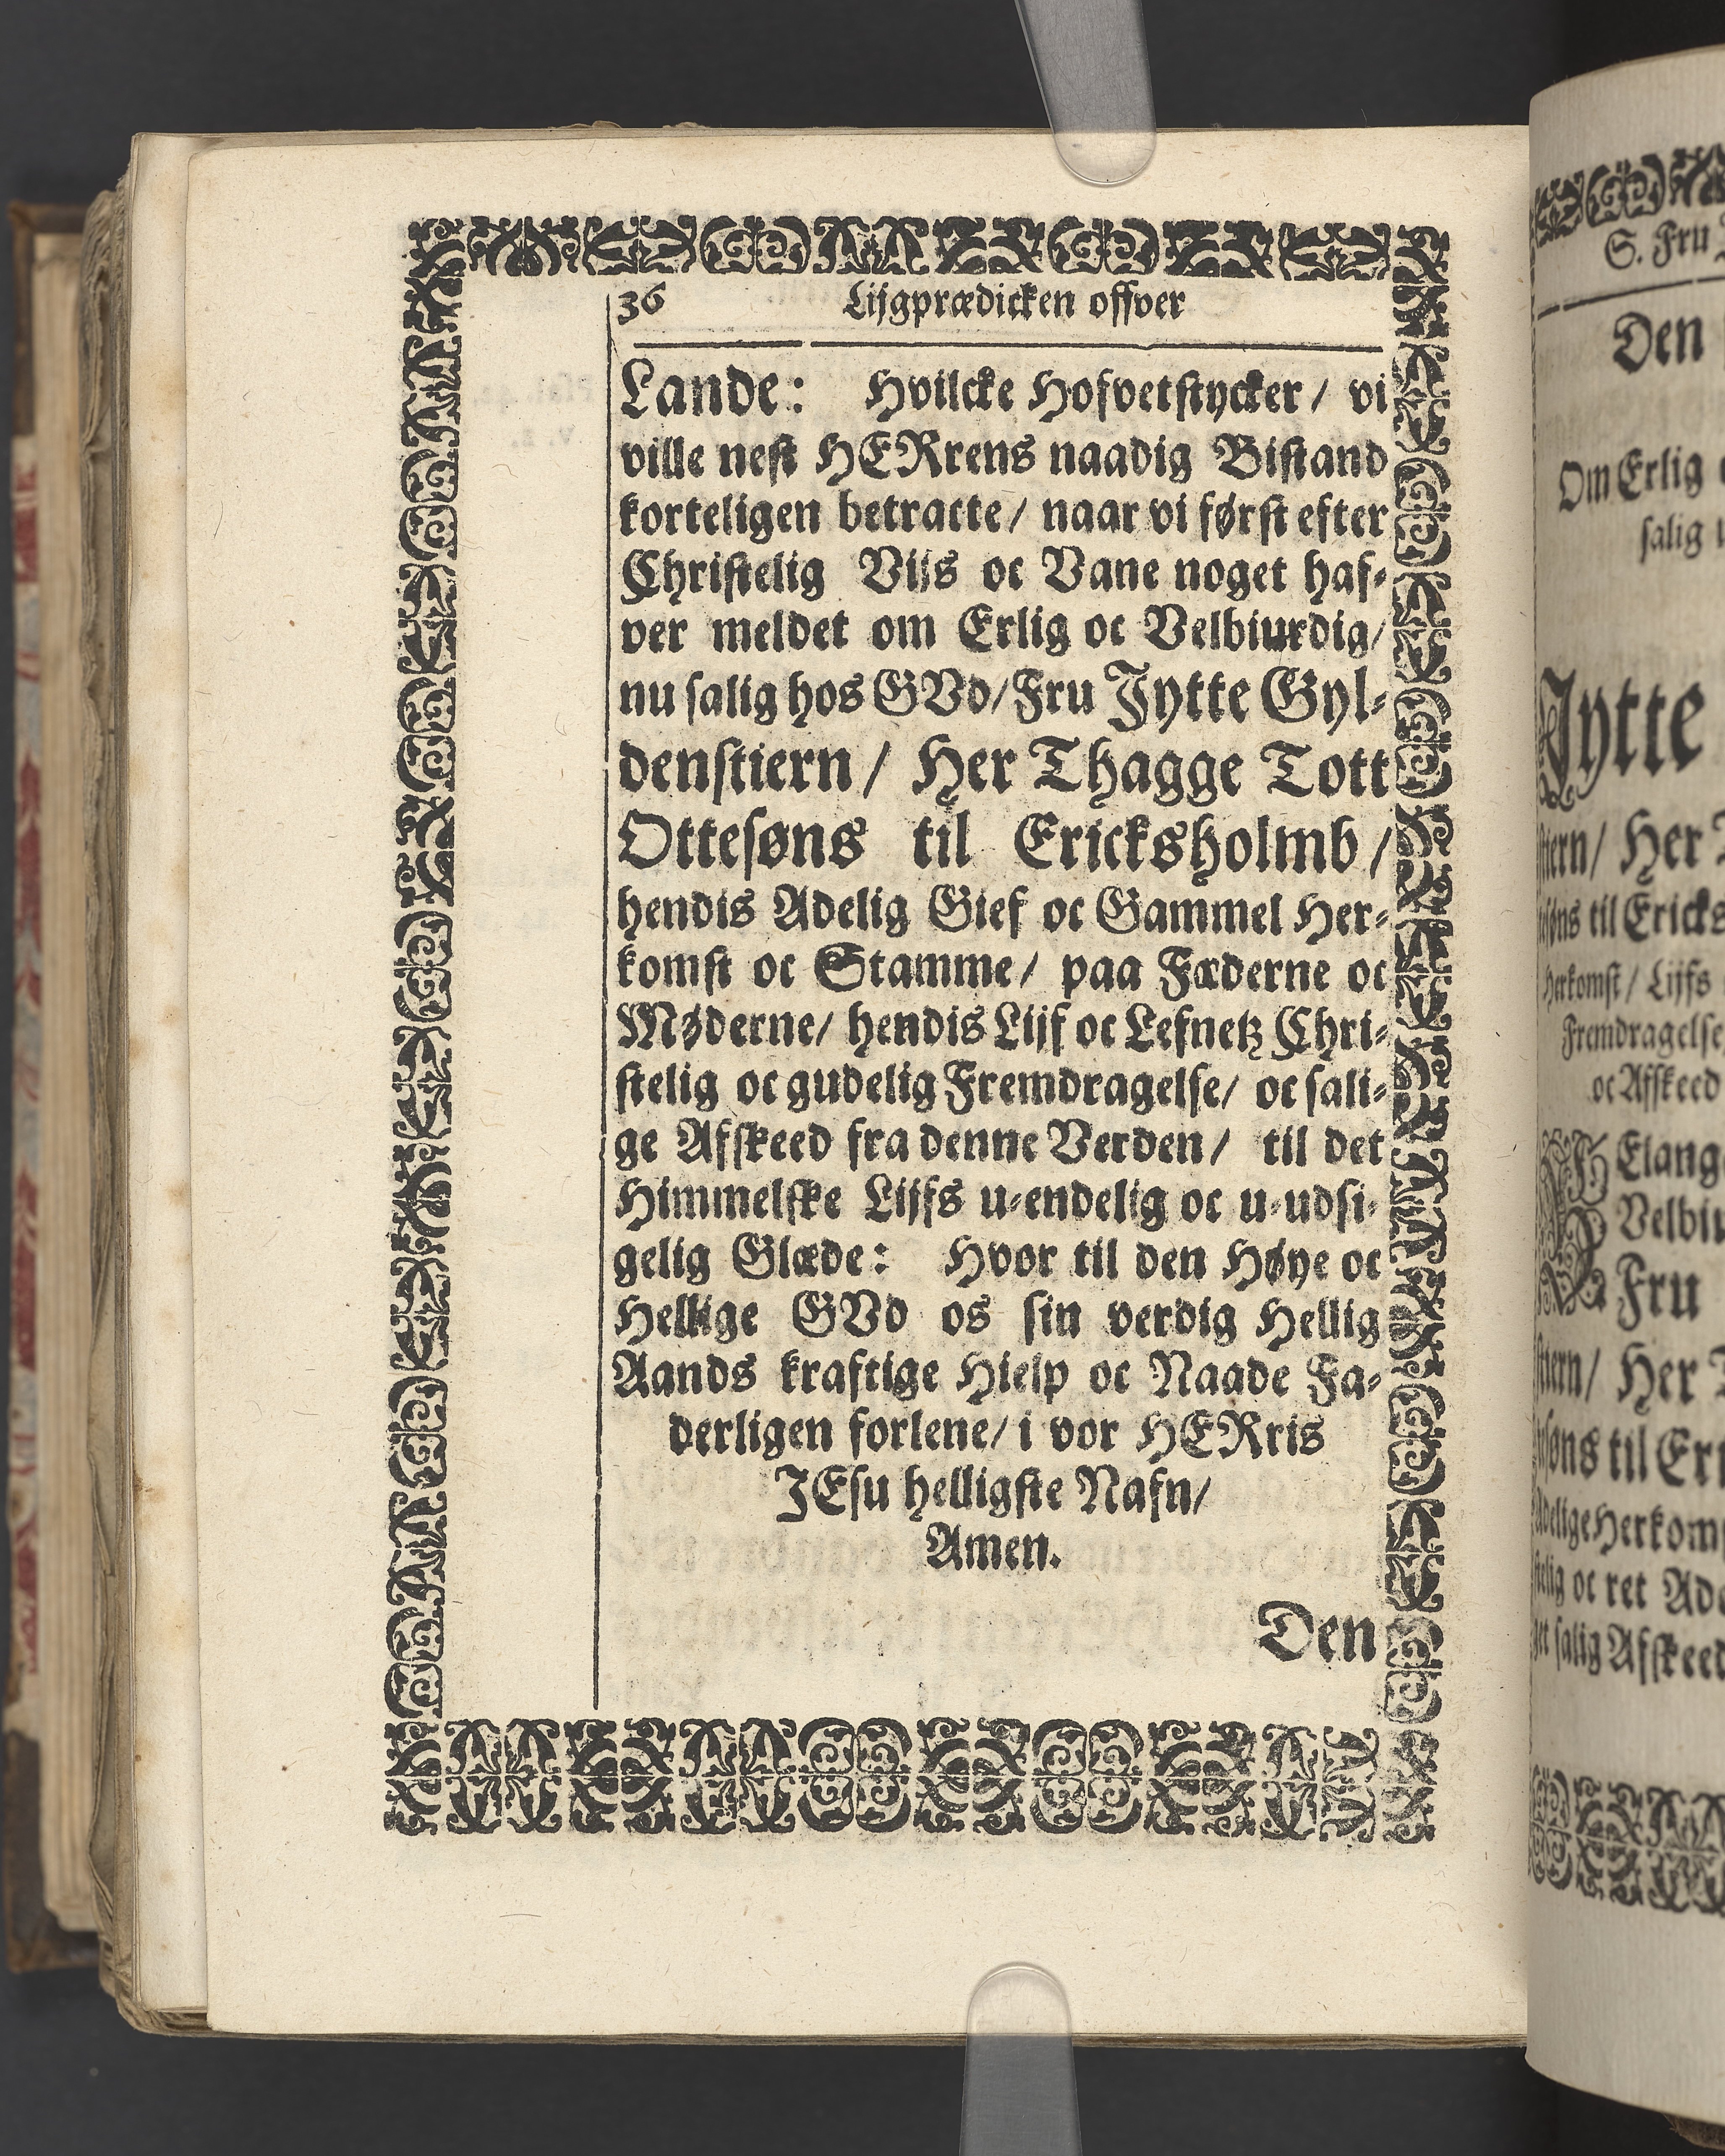 36 Lijgprædicken offver
Lande: Hvilcke Hofvetstycker/ vi
ville nest HERrens naadig Bistand
korteligen betracte/ naar vi først efter
Christelig Vijs oc Vane noget haf-
ver meldet om Erlig oc Velbiurdig/
nu salig hos GVd/ Fru Jytte Gyl-
denstiern/ Her Thagge Tott
Ottesøns til Ericksholmb/
hendis Adelig Gief oc Gammel Her-
komst oc Stamme/ paa Fæderne oc
Møderne/ hendis Lijf oc Lefnetz Chri-
stelig oc gudelig Fremdragelse/ oc sali-
ge Afskeed fra denne Verden/ til det
Himmelske Lijfs u-endelig oc u-udsi-
gelig Glæde: Hvor til den Høye oc
Hellige GVd os sin verdig Hellig
Aands kraftige Hielp oc Naade Fa-
derligen forlene/ i vor HERris
JEsu helligste Nafn/
Amen.
Den
S. Fru
Den
Om Erlig
salig
Jytte
stiern/ Her
til Ericks
Herkomst/ Lijfs
Fremdragelse
oc Afskeed
Elang
Velbiu
Fru
Her
til Er
Herkom
oc ret Ade
salig Afskeed